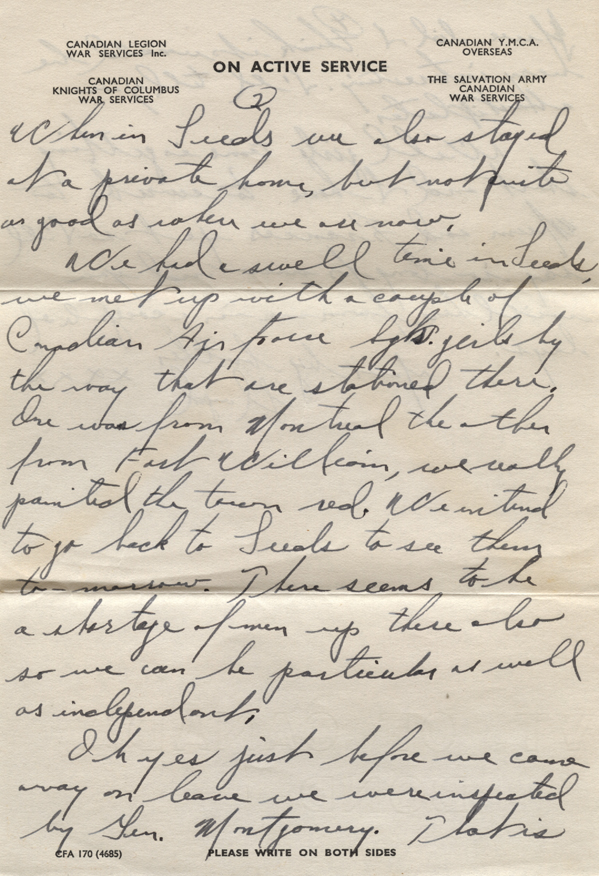 CANADIAN LEGION
WAR SERVICES Inc.
CANADIAN
KNIGHTS OF COLUMBUS
WAR SERVICES
ON ACTIVE SERVICE
CANADIAN Y.M.C.A.
OVERSEAS
THE SALVATION ARMY
CANADIAN
WAR SERVICES
2
When in Leeds we also stayed
at a private home, but not quite
as good as where we are now.
We had a swell time in Leeds,
we met up with a couple of
Canadian Air force Sgts. girls by
the way that are stationed there.
One was from Montreal the other
from Fort William, we really
painted the town red. We intend
to go back to Leeds to see them
to-morrow. There seems to be
a shortage of men up there also
so we can be particular as well
as independant.
Oh yes just before we came
away on leave we were inspected
by Gen. Montgomery. That is
CFA 170 (4685)
PLEASE WRITE ON BOTH SIDES